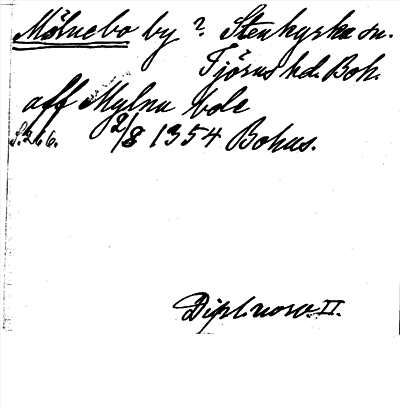 Mölnebo by ? Stenkyrka sn.
Tjörns hd. Boh.
aff Mylnu bole
S. 266. 2/8 1354 Bohus.
Dipl. norv. II.